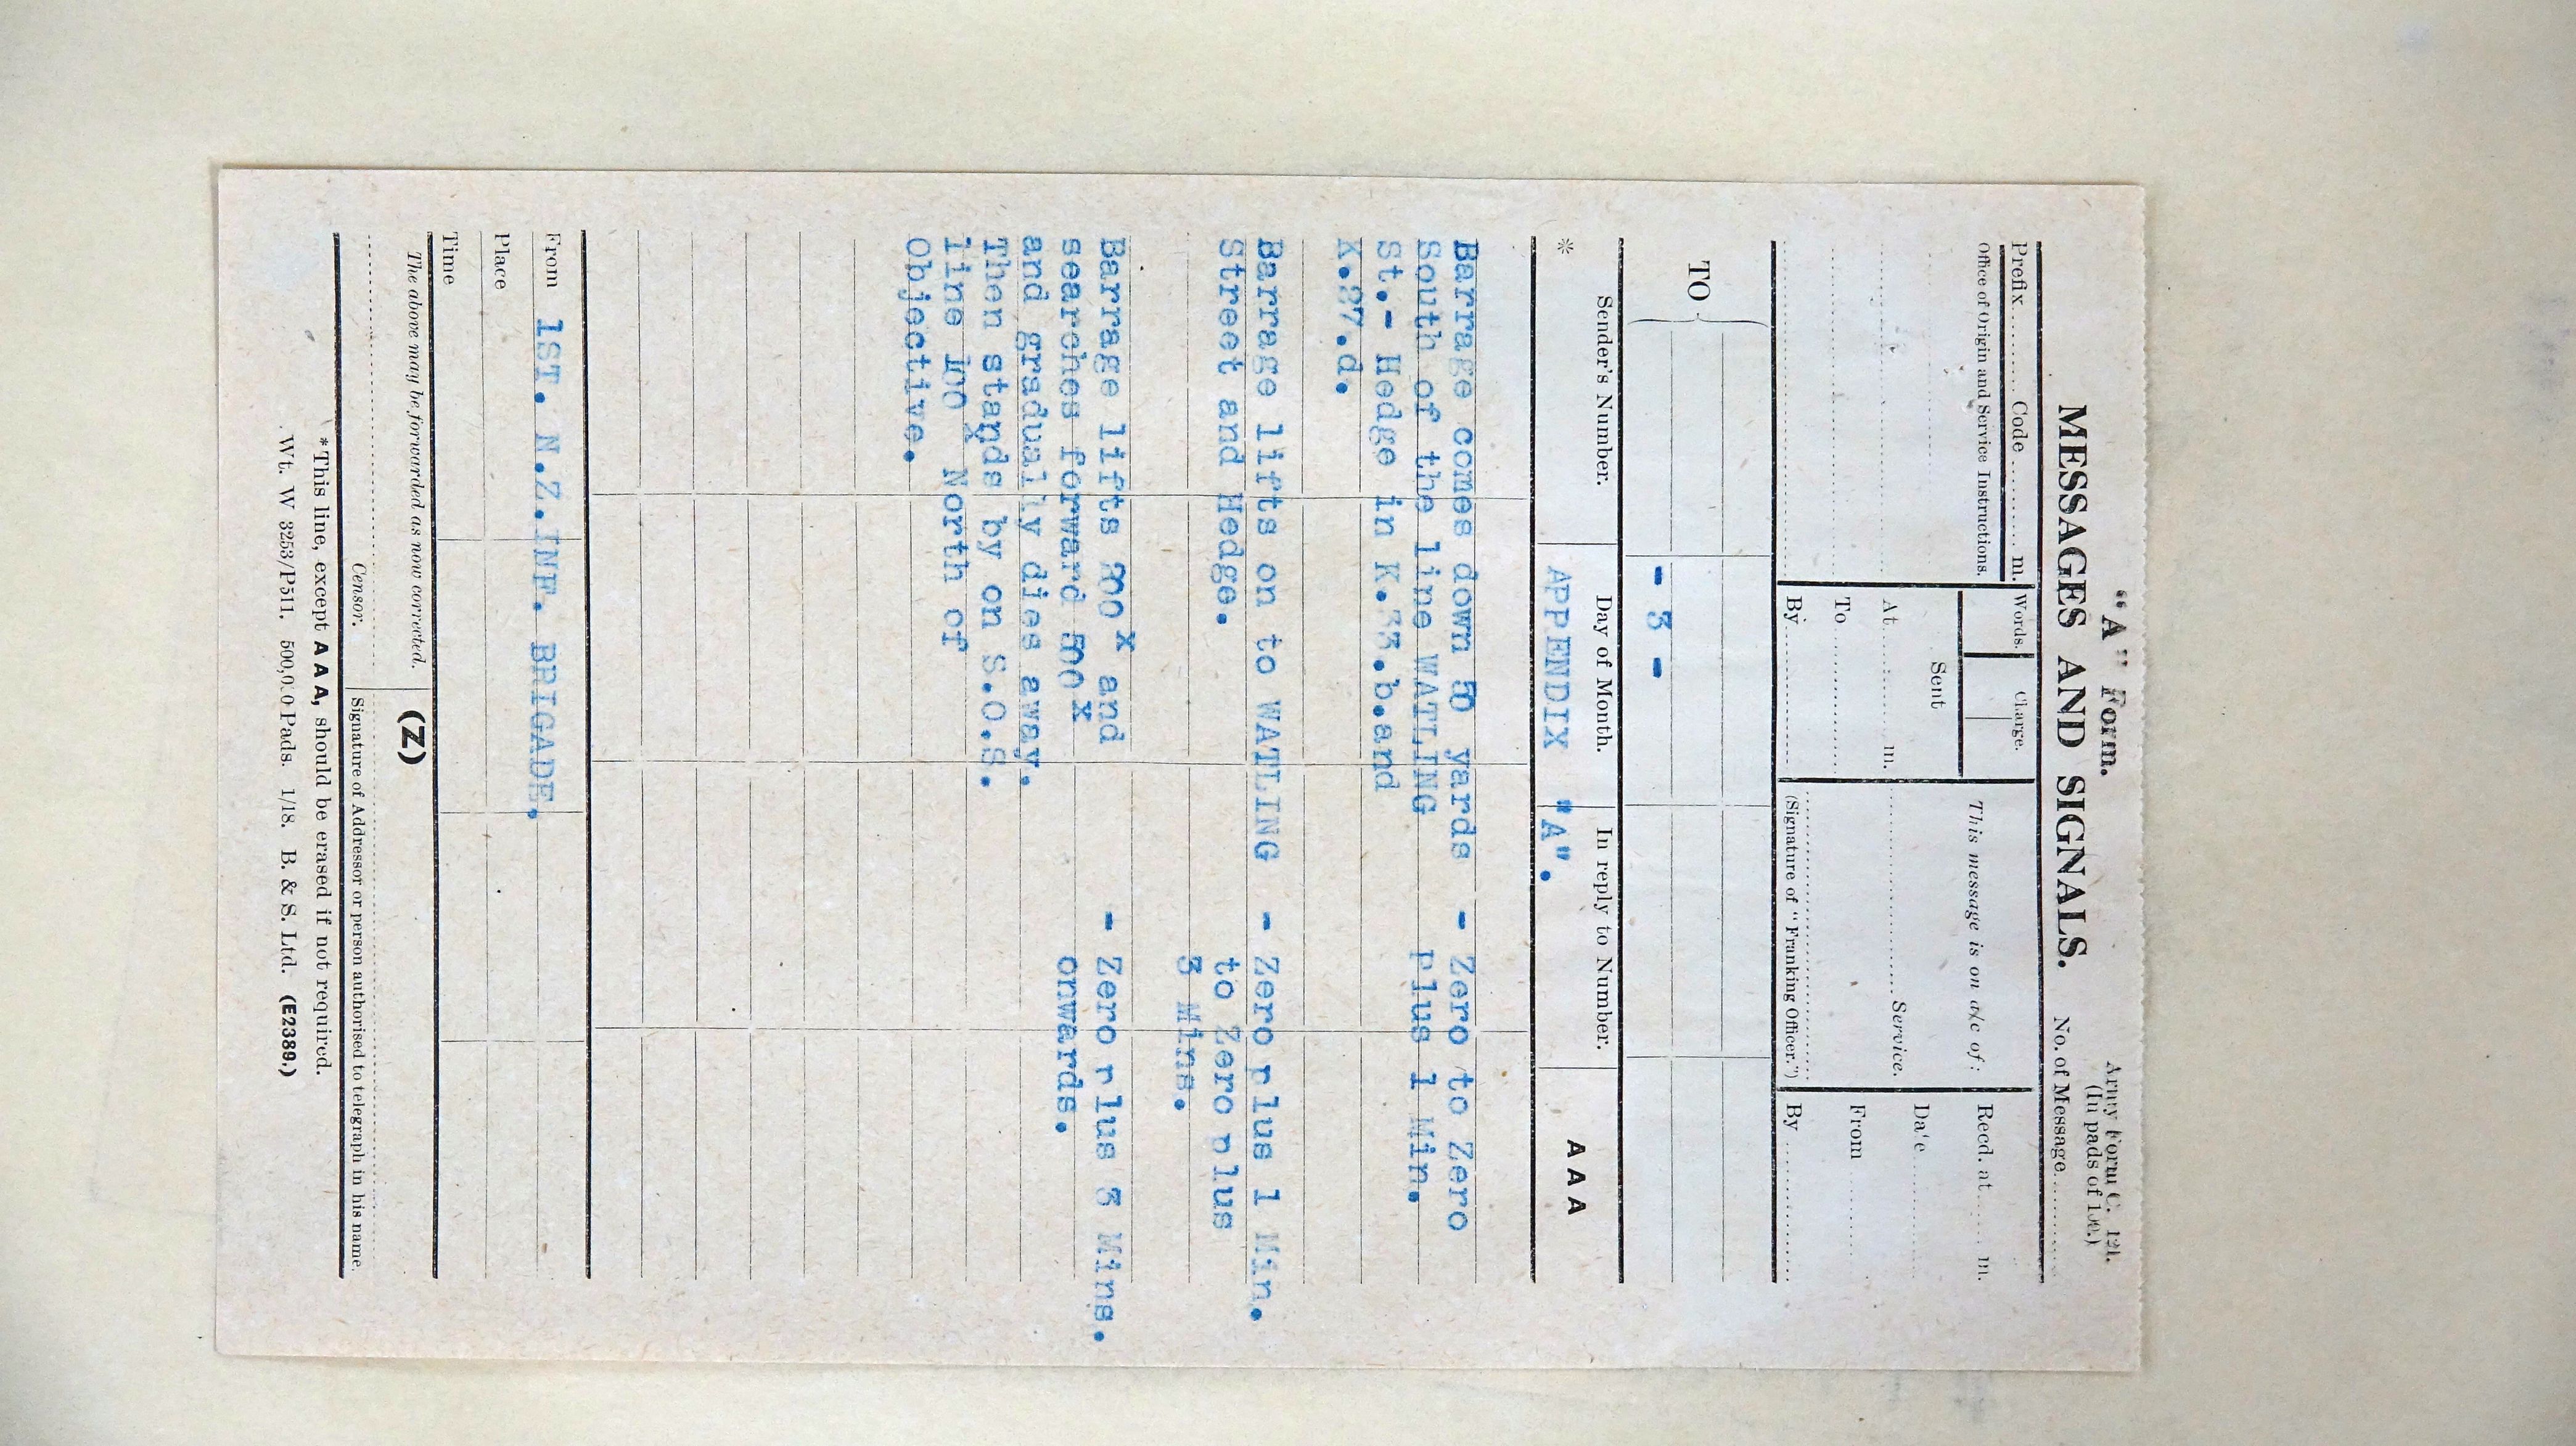 "A" Form.
Army Form C. 121.
MESSAGES AND SIGNALS.
(In pads of 100.)
No. of Message
Prefix Code m.
Words.
Charge.
Office of Origin and Service Instructions.
This message is on a/c of:
Recd. at m.
Sent
Date
At m.
Service.
From
To
By
(Signature of "Franking Officer.")
By
TO
- 3 -
Sender's Number.
Day of Month.
In reply to Number.
AAA
*
APPENDIX "A".
Barrage comes down 50 yards - Zero to Zero
South of the line WATLING plus 1 Min.
St.- Hedge in K.33.b.and
K.27.d.
Barrage lifts on to WATLING - Zero plus 1 Min.
Street and Hedge. to Zero plus
3 Mins.
Barrage lifts 200x and - Zero plus 3 Mins.
searches forward 500x onwards.
and gradually dies away.
Then stands by on S.O.S.
line 100x North of
Objective.
From 1ST. N.Z.INF. BRIGADE.
Place
Time
The above may be forwarded as now corrected.
(Z)
Censor.
Signature of Addressor or person authorised to telegraph in his name.
*This line, except AAA, should be erased if not required.
Wt. W 3253/P511. 500,000 Pads. 1/18. B. & S. Ltd. (E2389.)